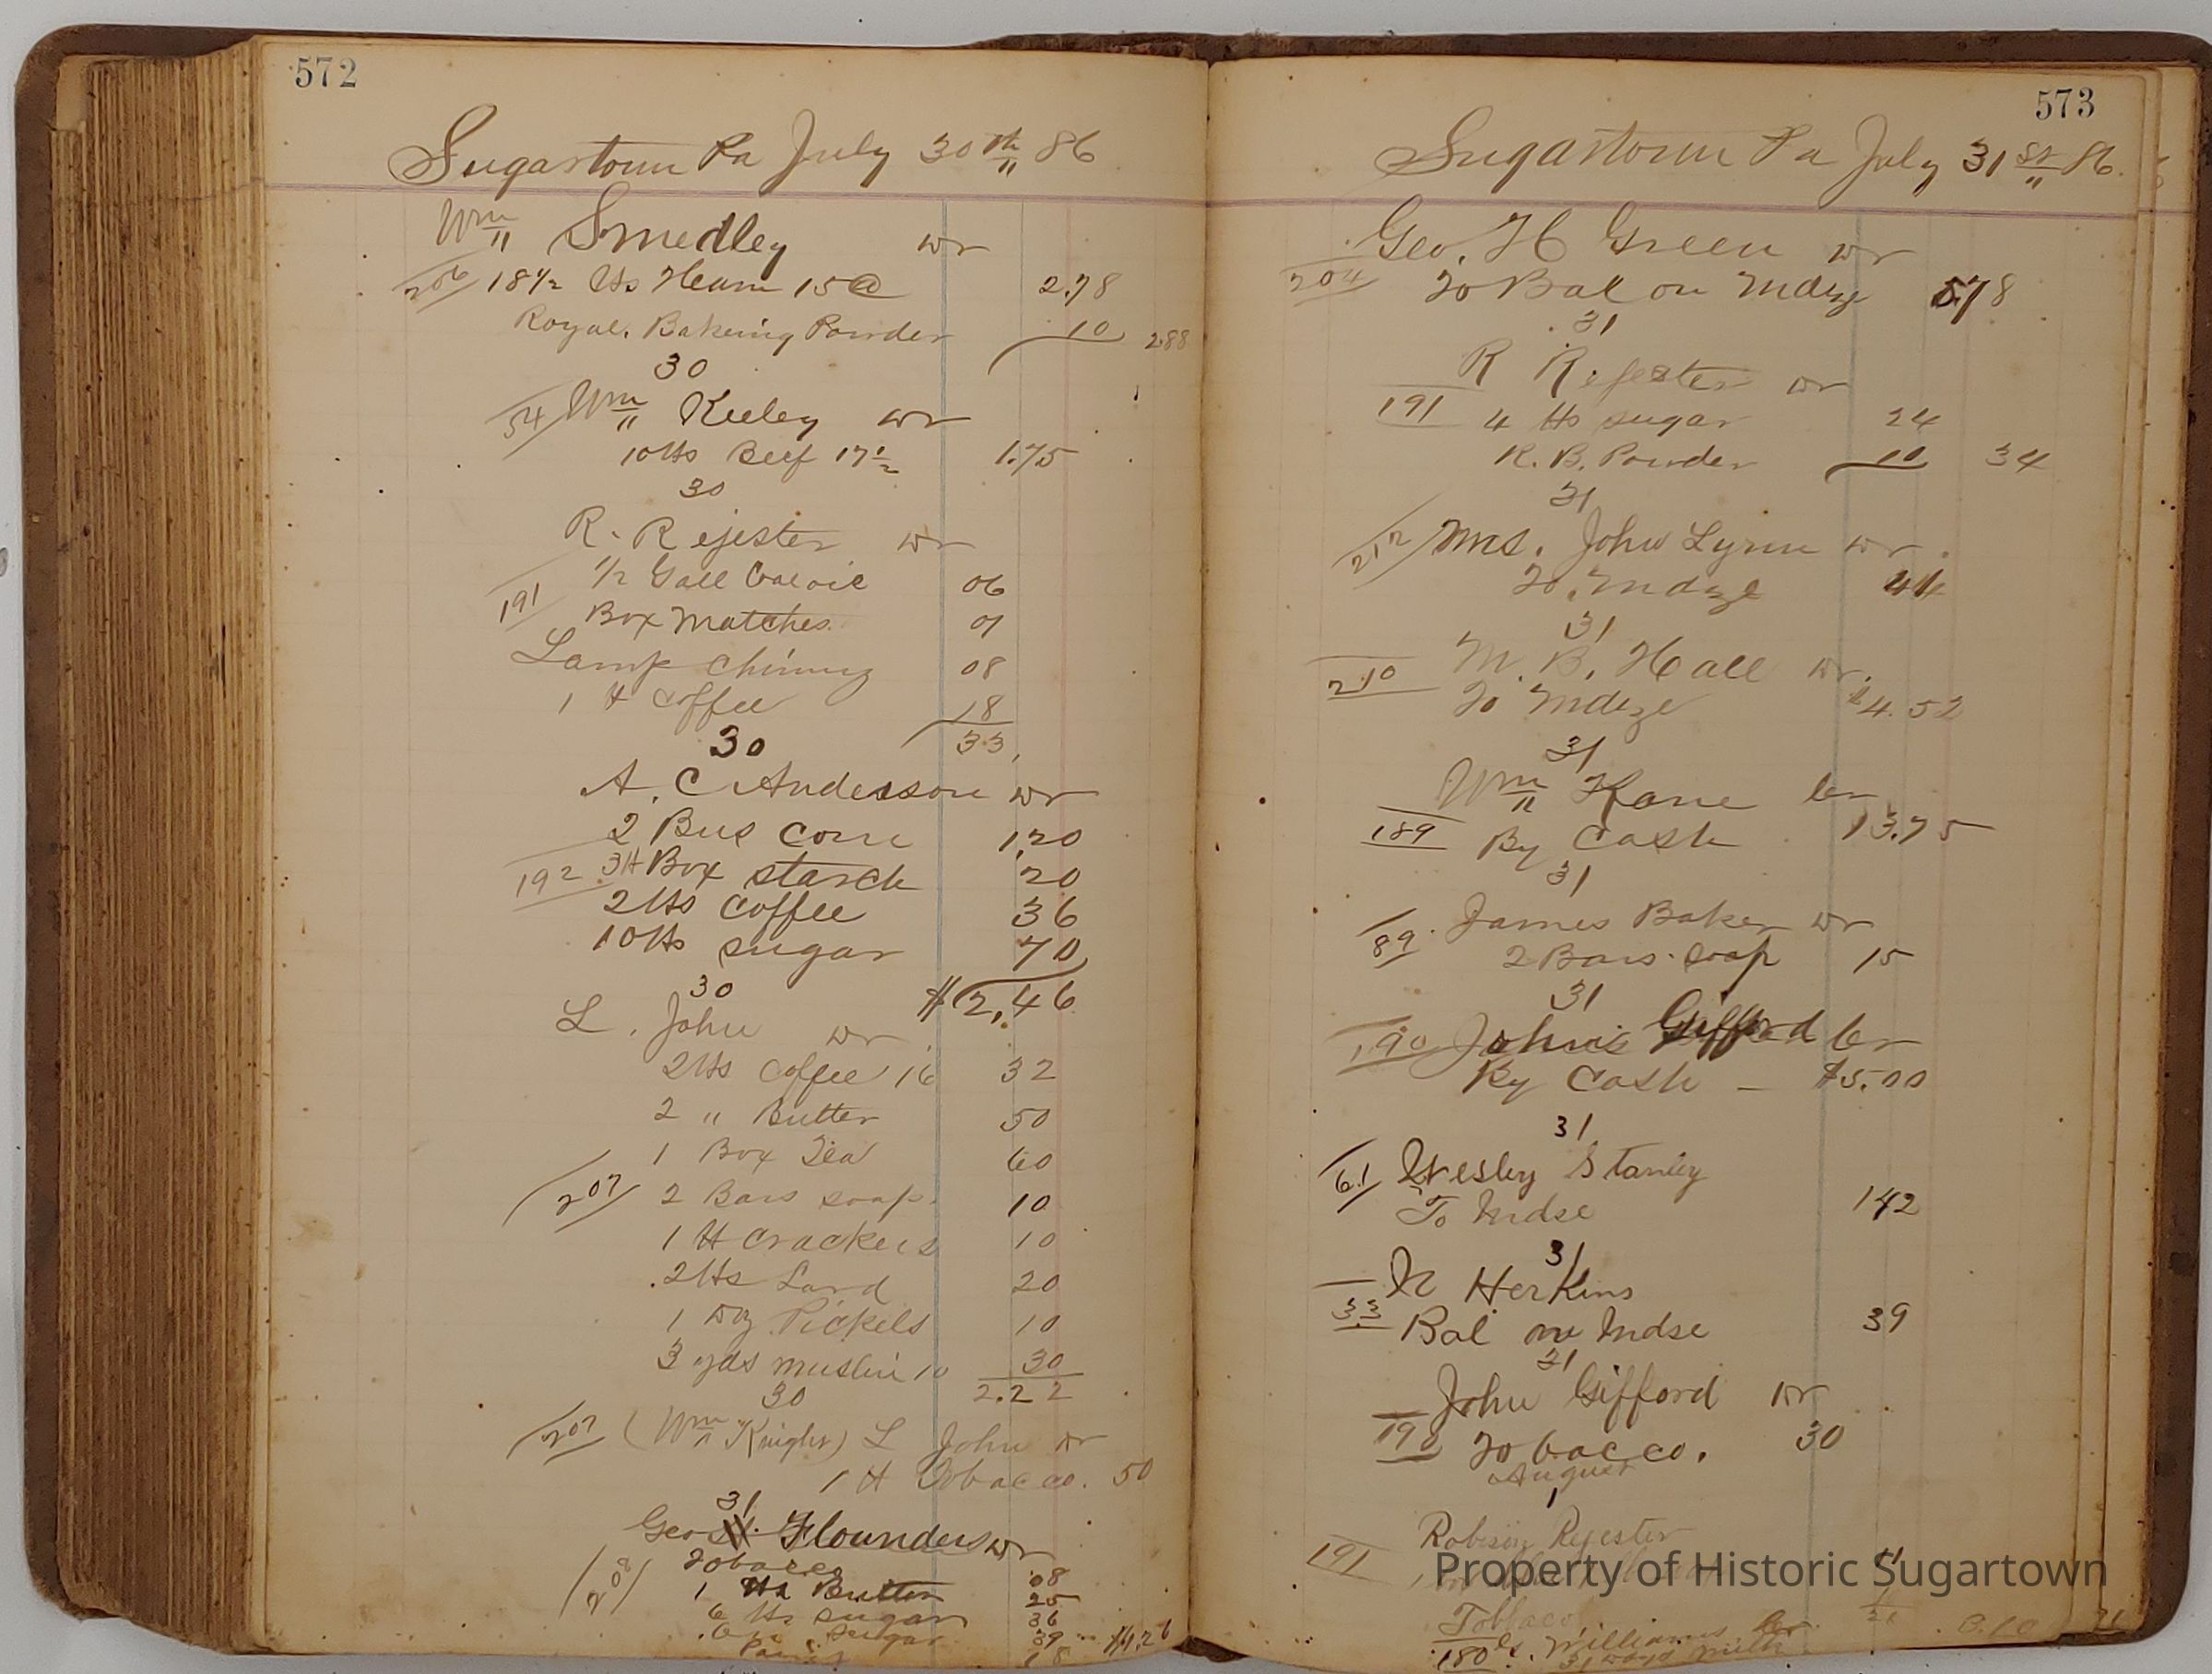 572
Sugartown Pa July 30th 86
Wm Smedley Dr
206 18 1/2 lbs Ham 15@ 2.78
Royal. Bakeing Powder 10 2.88
30
54 Wm Keeley Dr
10 lbs Beef 17 1/2 1.75
30
R. Rejester Dr
1/2 Gall Coaloil 06
191 Box Matches 01
Lamp Chimny 08
1 lb Coffee 18
33
30
A. C Anderson Dr
2 Bus Corn 1,20
192 3 lb Box starch 20
2 lbs Coffee 36
10 lbs sugar 70
$2,46
30
L. John Dr
2 lbs Coffee 16 32
2 " Butter 50
1 Box Tea 60
207 2 Bars soap 10
1 lb Crackers 10
2 lbs Lard 20
1 Doz Pickels 10
3 yds muslin 10 30
2.22
30
207 (Wm Knight) L John Dr
1 lb Tobacco. 50
31
Geo Flounders Dr
208 Tobacco 08
1 lb Butter 25
6 lbs sugar 36
sugar 39
18
573
Sugartown Pa July 31st 86.
Geo. H Green Dr
204 To Bal on Mdze 5.78
31
R Rejester Dr
191 4 lbs sugar 24
R. B. Powder 10 34
31
212 Mrs. John Lynn Dr
To Mdze 41
31
M. B. Hall Dr.
210 To Mdze $4.52
31
Wm Kane Cr
189 By Cash 13.75
31
James Baker Dr
89 2 Bars soap 15
31
190 John Gifford Cr
By Cash — $5.00
31
61 Wesley Stanley
To Mdse 142
31
N Herkins
33 Bal on Mdse 39
31
John Gifford Dr
190 Tobacco. 30
August
1
Robison Rejester
191
Property of Historic Sugartown
Tobbaco
180 Williams Cr